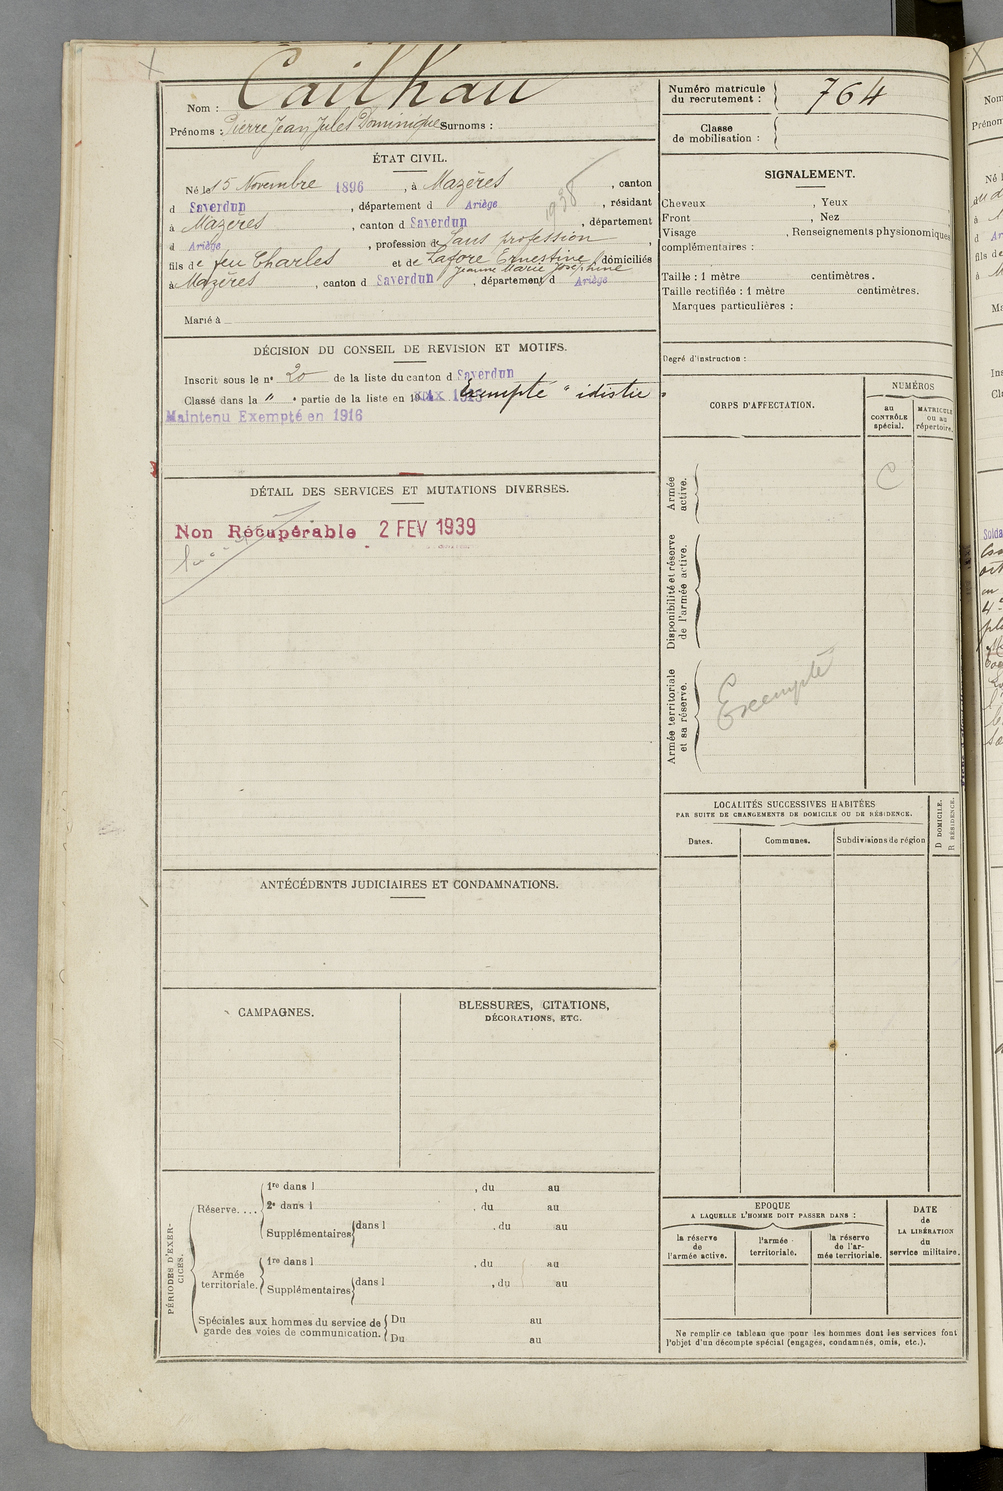 Cailhau
Nom :
Prénoms : Pierre Jean Jules Dominique Surnoms :
Numéro matricule
du recrutement : 764
Classe
de mobilisation :
ÉTAT CIVIL.
Né le 15 Novembre 1896, à Mazères, canton
d Saverdun, département d Ariège, résidant
à Mazères, canton d Saverdun, département
d Ariège, profession de Sans profession,
fils de feu Charles et de Lafore Ernestine domiciliés
Jeanne Marie Joséphine
à Mazères, canton d Saverdun, département d Ariège
1938
Marié à
SIGNALEMENT.
Cheveux , Yeux
Front , Nez
Visage , Renseignements physionomiques
complémentaires :
Taille : 1 mètre centimètres.
Taille rectifiée : 1 mètre centimètres.
Marques particulières :
Degré d'instruction :
DÉCISION DU CONSEIL DE REVISION ET MOTIFS.
Inscrit sous le nº 20 de la liste du canton d Saverdun
Classé dans la " partie de la liste en 19 Exempté "
Maintenu Exempté en 1916
DÉTAIL DES SERVICES ET MUTATIONS DIVERSES.
Non Récupérable 2 FEV 1939
CORPS D'AFFECTATION.
NUMÉROS
au
CONTRÔLE
spécial.
MATRICULE
ou au
répertoire.
C
Armée
active.
Disponibilité et réserve
de l'armée active.
Armée territoriale
et sa réserve.
Exempté
LOCALITÉS SUCCESSIVES HABITÉES
PAR SUITE DE CHANGEMENTS DE DOMICILE OU DE RÉSIDENCE.
Dates.
Communes.
Subdivisions de région
D DOMICILE.
R RÉSIDENCE.
ANTÉCÉDENTS JUDICIAIRES ET CONDAMNATIONS.
CAMPAGNES.
BLESSURES, CITATIONS,
DÉCORATIONS, ETC.
PÉRIODES D'EXER-
CICES.
Réserve....
1re dans l , du au
2e dans l , du au
Supplémentaires dans l , du au
Armée
territoriale.
1re dans l , du au
Supplémentaires dans l , du au
Spéciales aux hommes du service de
garde des voies de communication.
Du au
Du au
EPOQUE
A LAQUELLE L'HOMME DOIT PASSER DANS :
la réserve
de
l'armée active.
l'armée
territoriale.
la réserve
de l'ar-
mée territoriale.
DATE
de
LA LIBÉRATION
du
service militaire.
Ne remplir ce tableau que pour les hommes dont les services font
l'objet d'un décompte spécial (engagés, condamnés, omis, etc.).